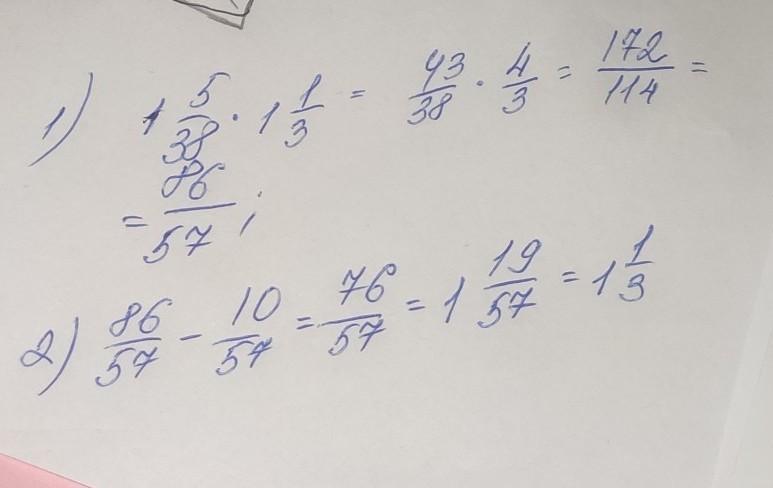 1) 1 5/38 · 1 1/3 = 43/38 · 4/3 = 172/114 =
= 86/57 ;
2) 86/57 - 10/57 = 76/57 = 1 19/57 = 1 1/3